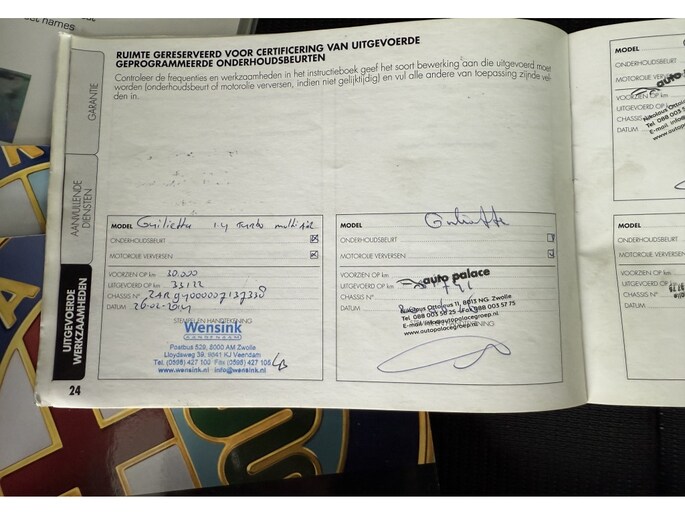 net names
RUIMTE GERESERVEERD VOOR CERTIFICERING VAN UITGEVOERDE
GEPROGRAMMEERDE ONDERHOUDSBEURTEN
Controleer de frequenties en werkzaamheden in het instructieboek geef het soort bewerking aan die uitgevoerd moet
worden (onderhoudsbeurt of motorolie verversen, indien niet gelijktijdig) en vul alle andere van toepassing zijnde vel-
den in.
GARANTIE
AANVULLENDE
DIENSTEN
UITGEVOERDE
WERKZAAMHEDEN
MODEL Guilietta 1.4 Turbo multiair
ONDERHOUDSBEURT
MOTOROLIE VERVERSEN
VOORZIEN OP km 30.000
UITGEVOERD OP km 33122
CHASSIS N°
DATUM 26-02-2014
STEMPEL EN HANDTEKENING
Wensink
Postbus 529, 8000 AM Zwolle
Lloydsweg 39, 9641 KJ Veendam
Tel. (0598) 427 100 Fax (0598) 427 105
www.wensink.nl info@wensink.nl
24
MODEL Giulietta
ONDERHOUDSBEURT
MOTOROLIE VERVERSEN
VOORZIEN OP km
UITGEVOERD OP km
CHASSIS N°
DATUM
auto palace
11, 8013 NG Zwolle
Tel. 088 003 58 25
003 57 75
www.autopalacegroep.nl
MODEL
ONDERHOUDSBEURT
MOTOROLIE
VOORZIEN OP km
UITGEVOERD OP
CHASSIS
DATUM
auto
Tel 088 003 5
E-mail
www.autopa
MODEL
ONDERHOUDSBEURT
MOTOROLIE VERVERSEN
VOORZIEN OP km
UITGEVOERD OP km
CHASSIS N°
DATUM